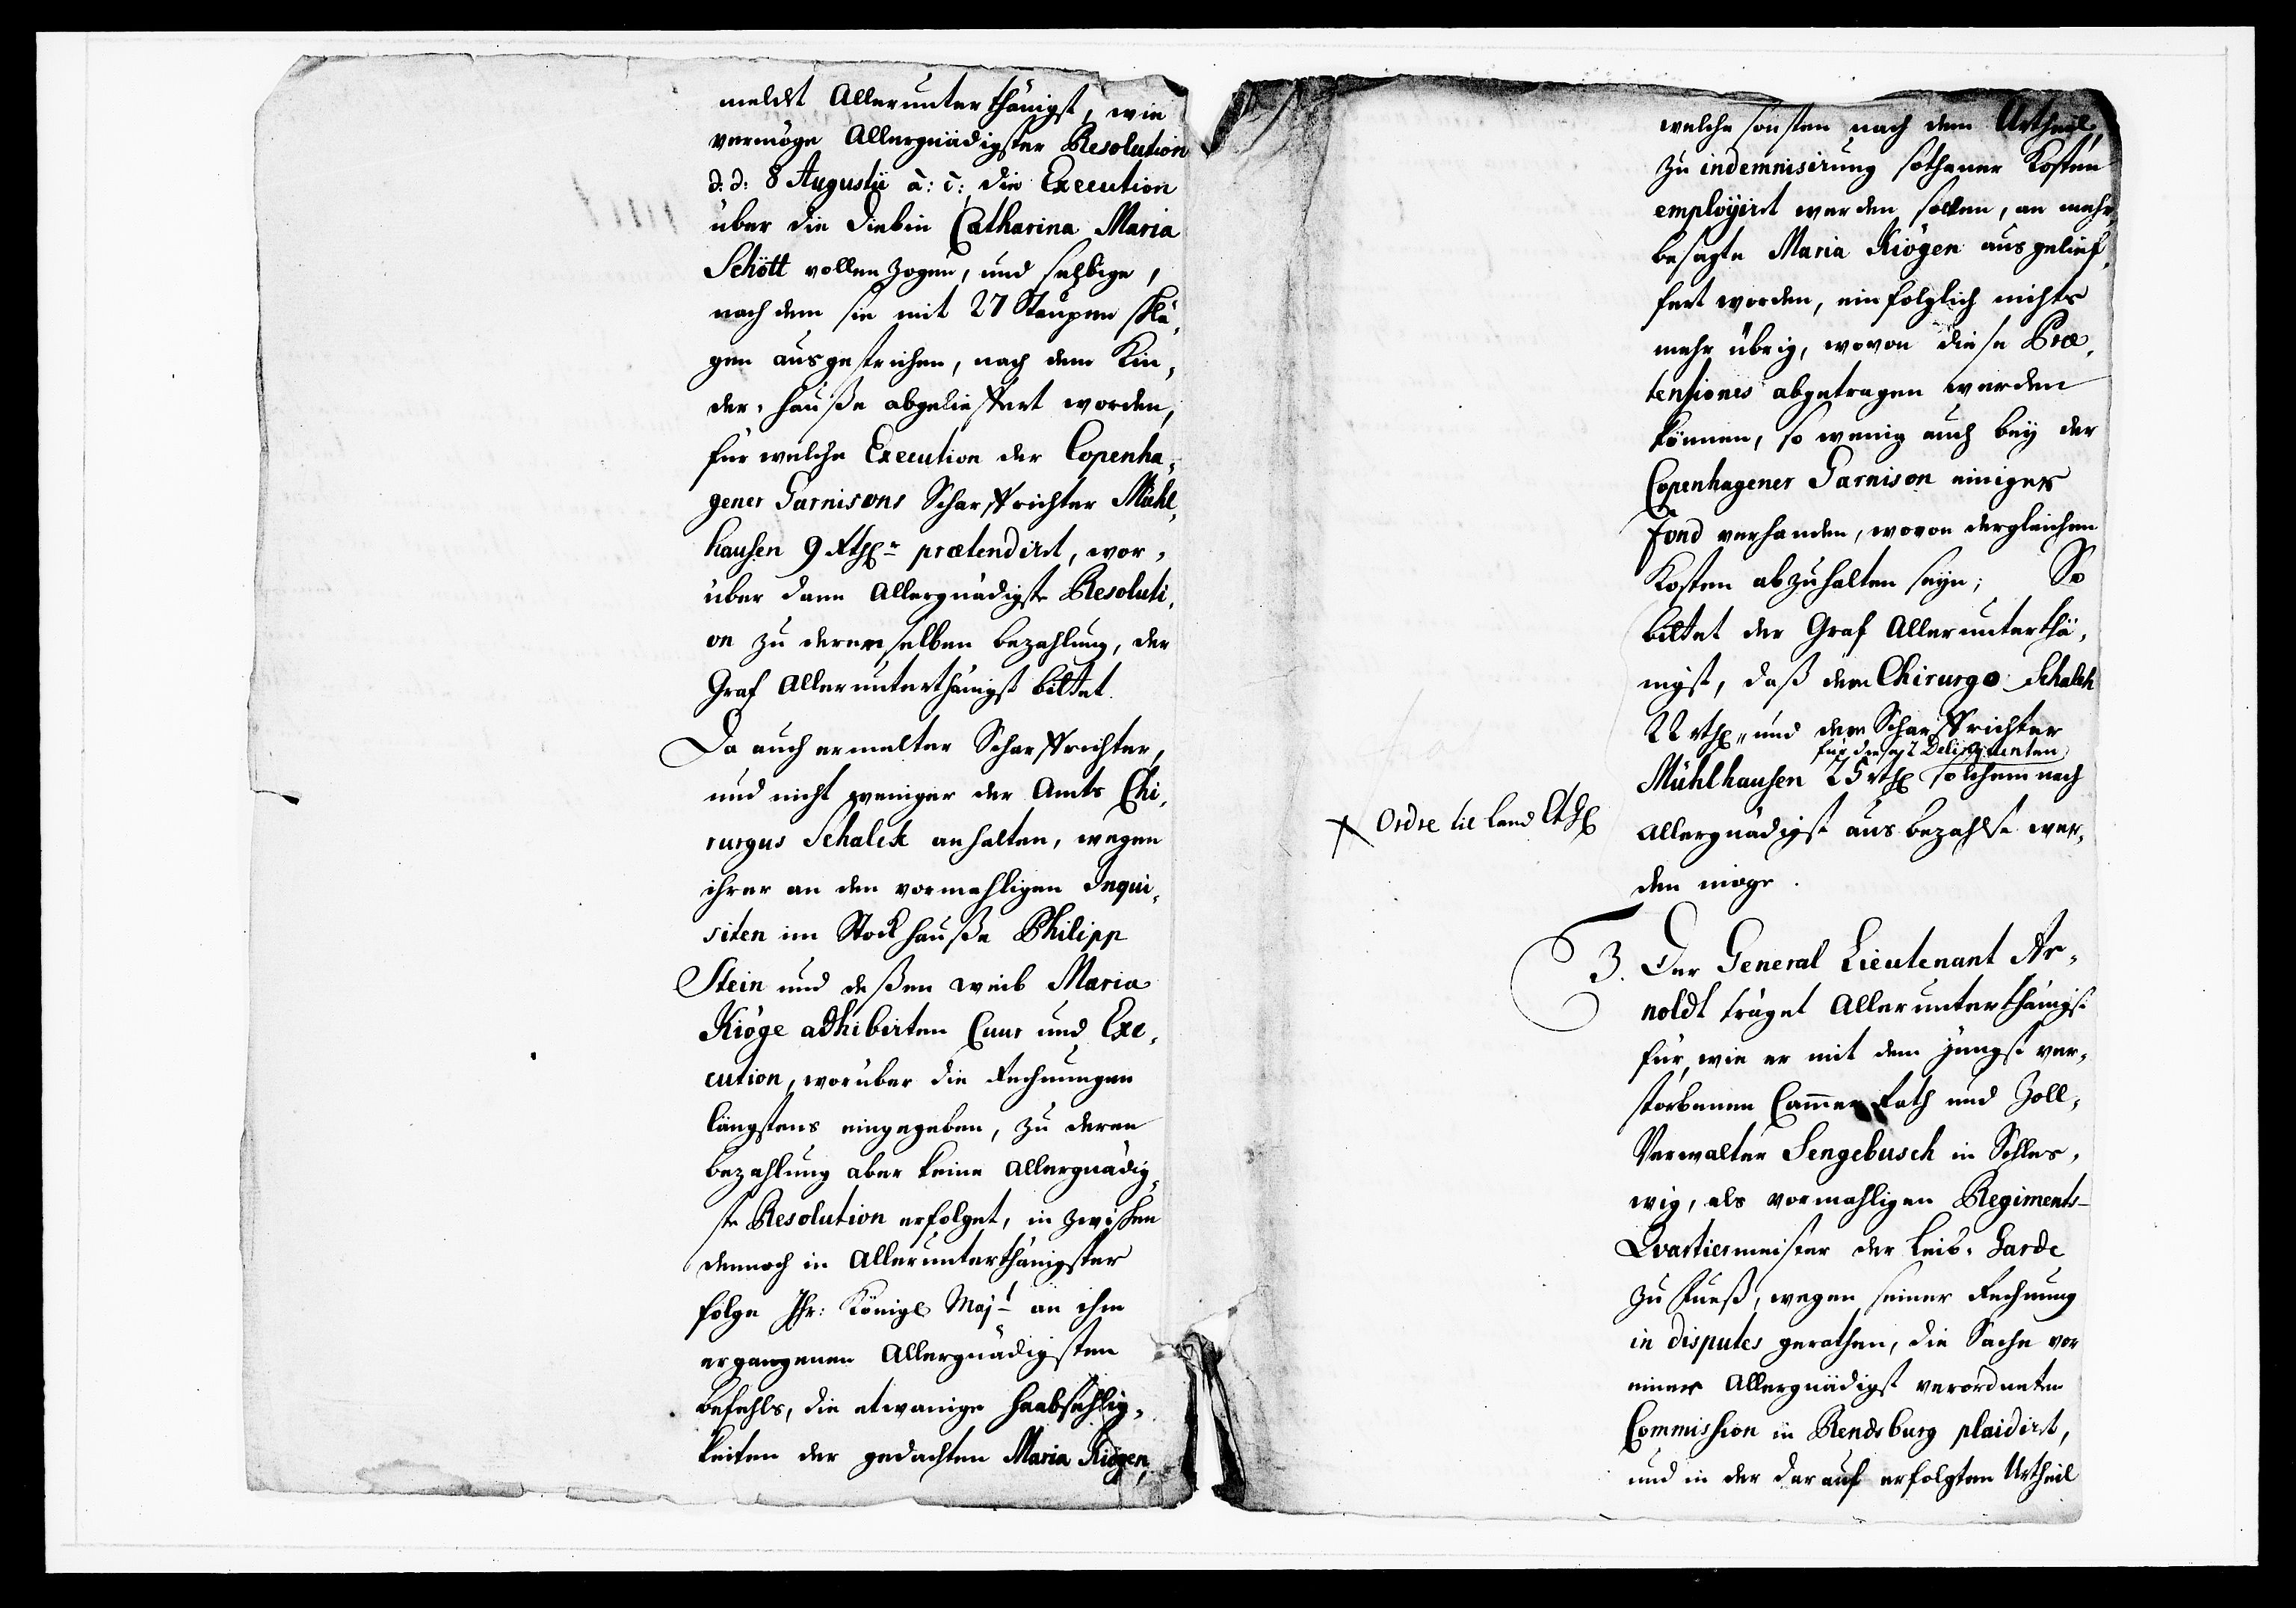 meldet Allerunterthänigst, wie
vermöge Allergnädigster Resolution
d. d: 8 Augustii a: c: die Execution
über die Diebin Catharina Maria
Schött vollenzogen, und selbige,
nach dem sie mit 27 Staupen schlä,
gen ausgestrichen, nach dem Kin,
der, hauße abgelieffert worden,
für welche Execution der Copenha,
gener Garnisons Scharffrichter Mühl,
hausen 9 Rthlr prætendiret, wor,
über dann Allergnädigste Resoluti,
on zu derenselben bezahlung, der
Graf Allerunterthänigst bittet.
Da auch ermelter Scharffrichter,
und nicht weniger der Amts Chi,
rurgus Schalck anhalten, wegen
ihrer an den vormahligen Inqui,
siten im Stockhauße Philipp
Stein und deßen weib Maria
Kiöge adhibirten Cuur und Exe,
cution, worüber die Rechnungen
längstens eingegeben, zu deren
bezahlung aber keine Allergnädig,
ste Resolution erfolget, in zwischen
dennoch in Allerunterthänigster
folge Ihr: Königl Majt an ihm
ergangenen Allergnädigsten
befehls, die etwanige haabsehlig,
keiten der gedachten Maria Kiögen,
welche sonsten nach dem Urtheil,
zu indemnisirung sothaner Kosten
employiret werden sollen, an mehr,
besagte Maria Kiögen ausgelief,
fert worden, einfolglich nichts
mehr übrig, wovon diese Præ,
tensiones abgetragen werden
können, so wenig auch bey der
Copenhagener Garnison einiger
Fond verhanden, wovon dergleichen
Kosten abzuhalten seyn; So
bittet der Graf Allerunterthä,
nigst, daß dem Chirurgo Schalck
22 rthl, und dem Scharffrichter
für die 2 Deliquenten
Mühlhausen 25 rthl solchem nach
X Ordre til Land Ethl
Allergnädigst aus bezahlt wer,
den möge.
3. Der General Lieutenant Ar,
noldt träget Allerunterthänigst
für, wie er mit dem jüngst ver,
storbenen Cammer Rath und Zoll,
Verwalter Sengebusch in Schles,
wig, als vormahligen Regiments-
Qvartiermeister der Leib, Garde
zu Fueß, wegen seiner Rechnung
in disputes gerathen, die Sache vor
einer Allergnädigst verordneten
Commission in Rendsburg plaidirt,
und in der darauf erfolgten Urtheil